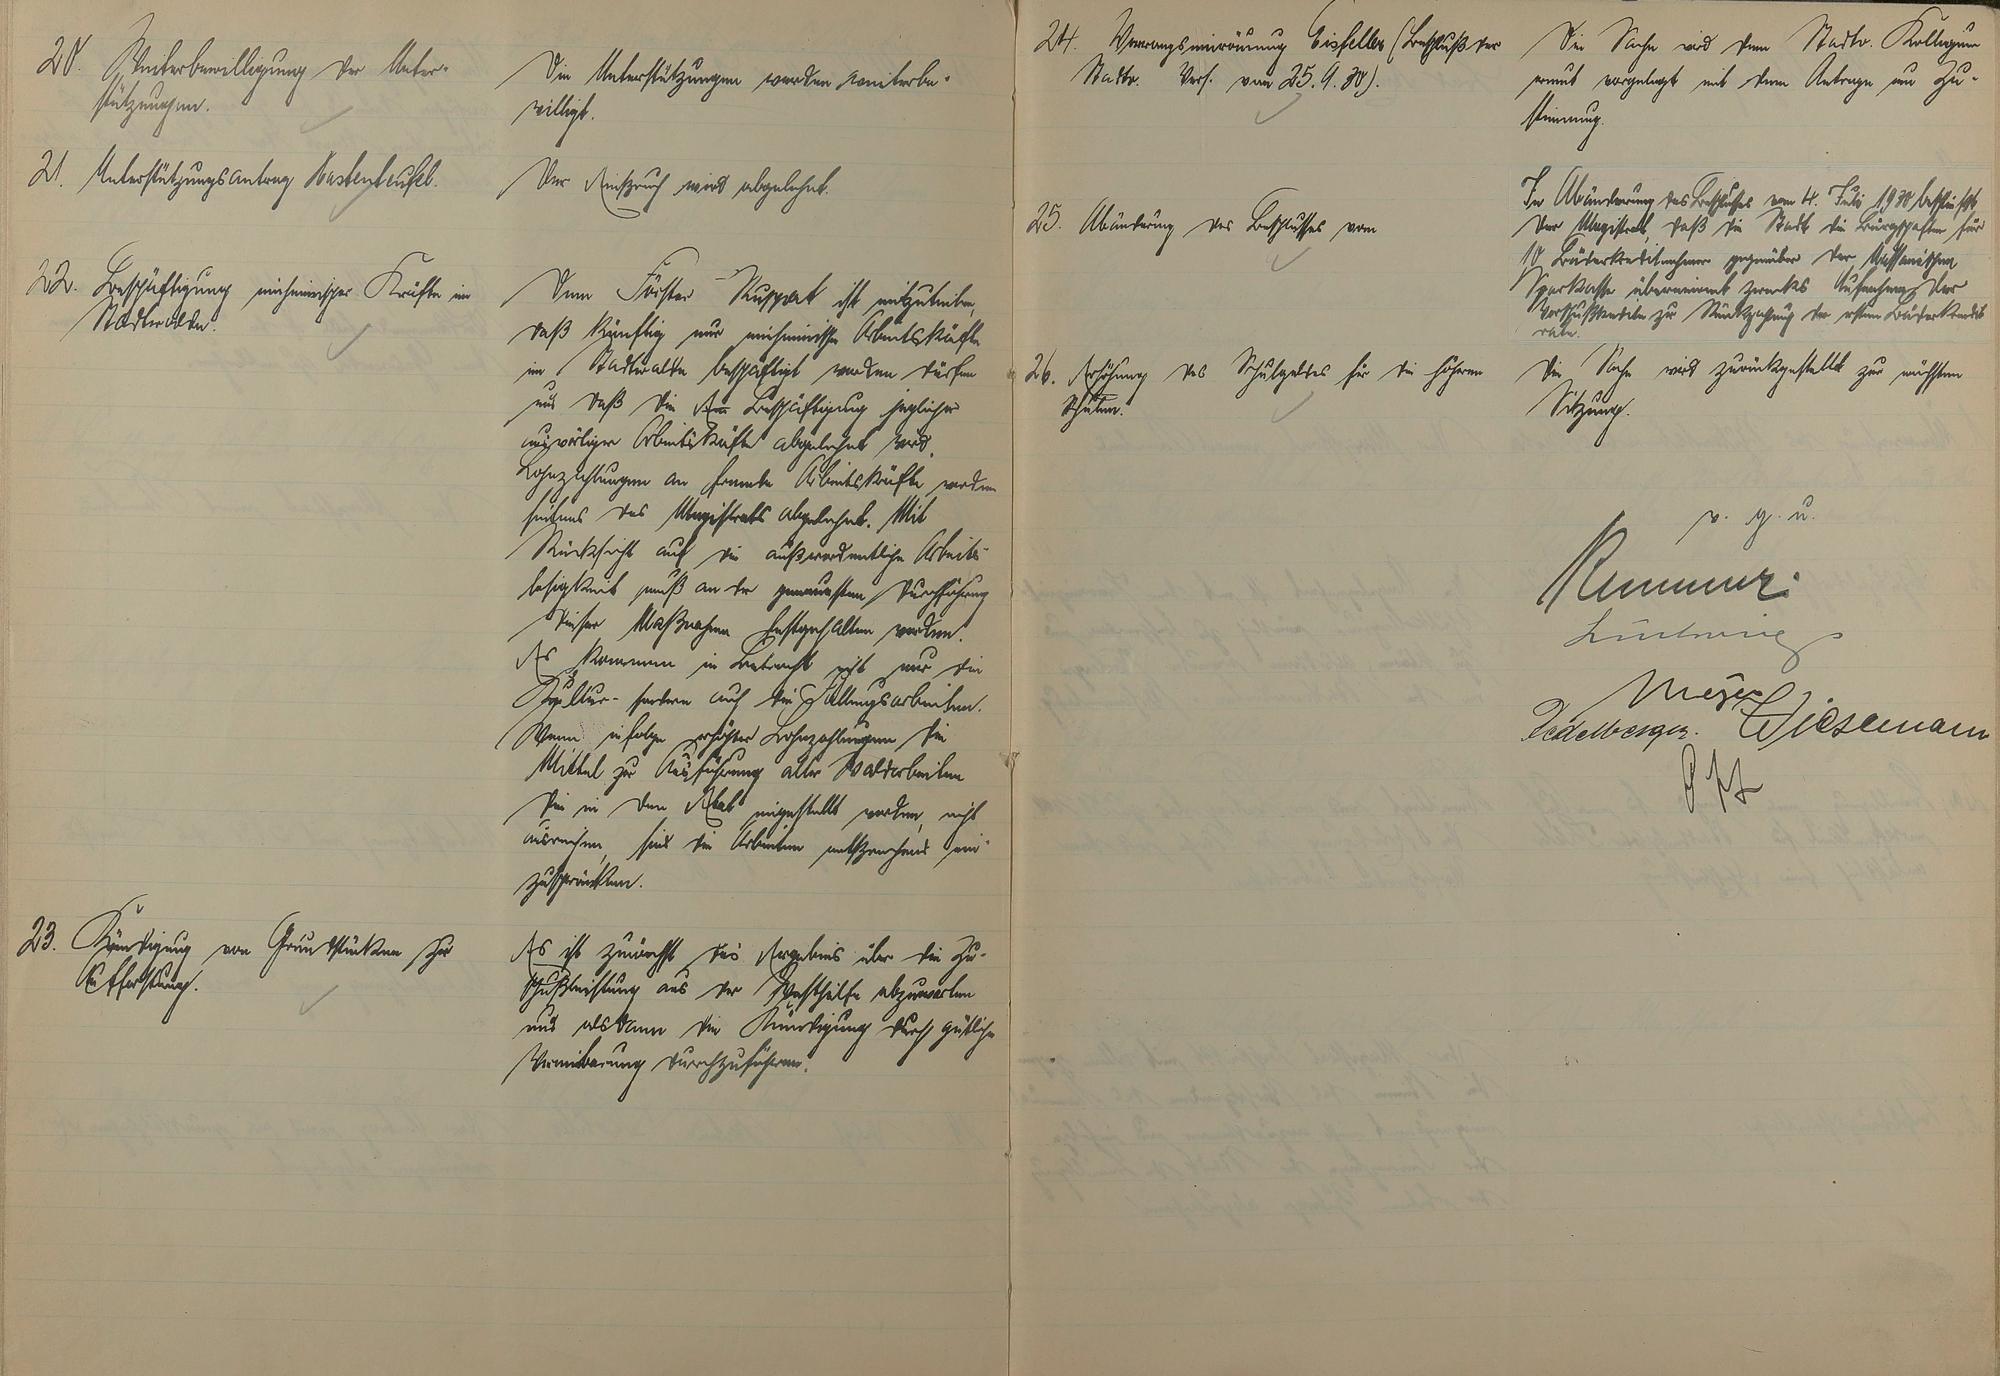 20. Weiterbewilligung der Unter-
stützungen.
Die Unterstützungen werden weiterbe-
willigt.
21. Unterstützungsantrag Hastenteufel.
Der Einspruch wird abgelehnt.
22. Beschäftigung einheimischer Kräfte im
Stadtwalde.
Dem Förster Ruppert ist mitzuteilen,
daß künftig nur einheimische Arbeitskräfte
im Stadtwalde beschäftigt werden dürfen
und daß die Beschäftigung jeglicher
auswärtiger Arbeitskräfte abgelehnt wird.
Lohnzahlungen an fremde Arbeitskräfte werden
seitens des Magistrats abgelehnt. Mit
Rücksicht auf die außerordentliche Arbeits-
losigkeit muß an der genauesten Durchführung
dieser Maßnahme festgehalten werden.
Es kommen in Betracht nicht nur die
Kultur- sondern auch die Fällungsarbeiten.
Wenn infolge erhöhter Lohnzahlungen die
Mittel zur Ausführung aller Waldarbeiten
die in den Etat eingestellt worden, nicht
ausreichen, sind die Arbeiten entsprechend ein-
zuschränken.
23. Kündigung von Grundstücken zur
Aufforstung.
Es ist zunächst das Ergebnis über die Zu-
schußleistung aus der Westhilfe abzuwarten
und alsdann die Kündigung durch gütliche
Vereinbarung durchzuführen.
24. Vorrangseinräumung Eisfeller (Beschluß der
Stadtv. Vers. vom 25.9.30).
Die Sache wird dem Stadtv. Kollegium
erneut vorgelegt mit dem Antrage um Zu-
stimmung.
25. Abänderung des Beschlusses vom
In Abänderung des Beschlusses vom 4. Juli 1930 beschließt
der Magistrat, daß die Stadt die Bürgschaften für
10 gegenüber der Nassauischen
Sparkasse übernimmt zwecks Aufnahme der
Vorschußkredite zur Rückzahlung der ersten
rate.
26. Erhöhung des Schulgeldes für die höheren
Schulen.
Die Sache wird zurückgestellt zur nächsten
Sitzung.
v. g. u.
Lüdwig
Meyer
Wiesemann